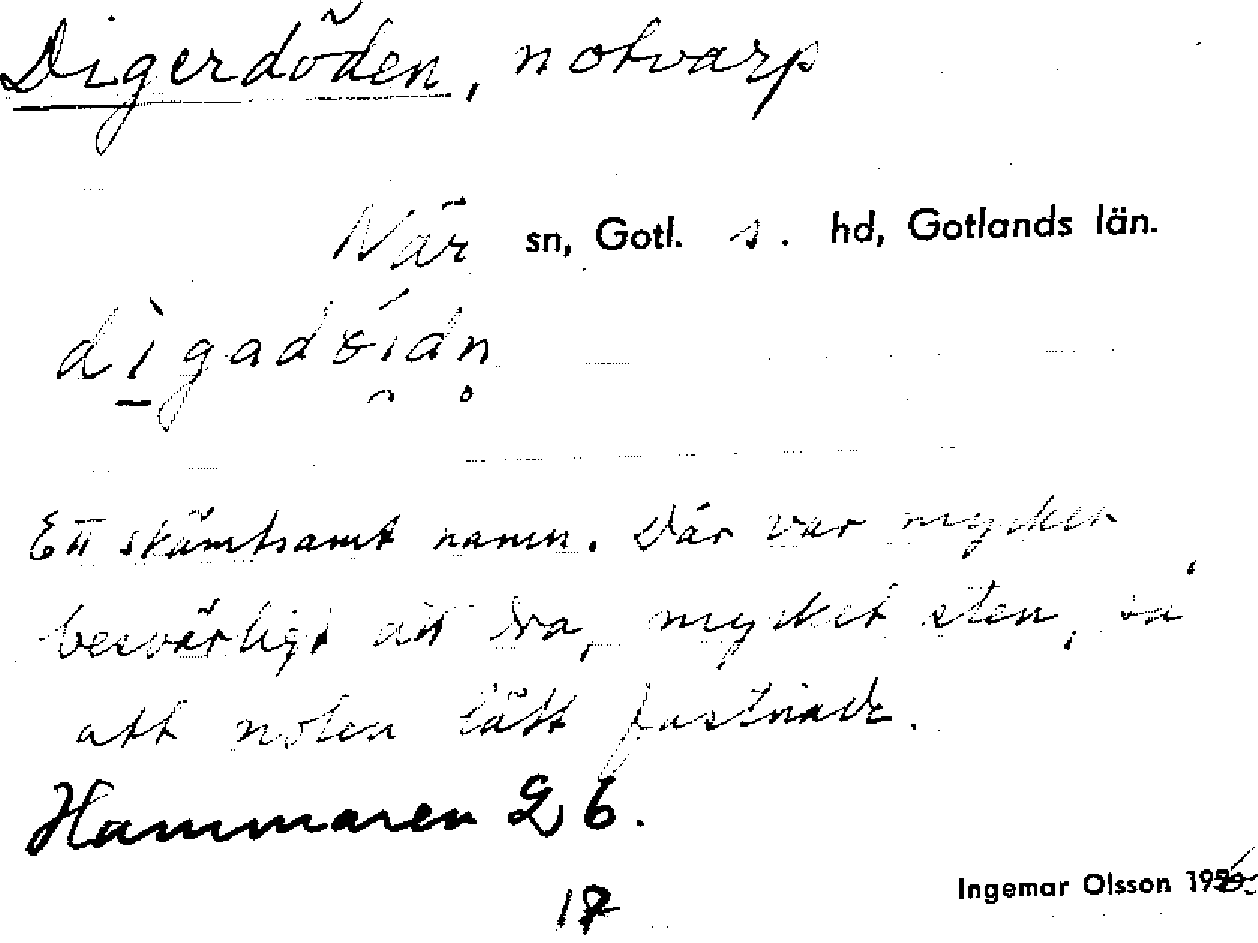 Digerdöden, notvarp
När sn, Gotl. s. hd, Gotlands län.
Ett skämtsamt namn. Där var mycket
besvärligt att dra, mycket sten, så
att noten lätt fastnade.
Hammaren
17
Ingemar Olsson